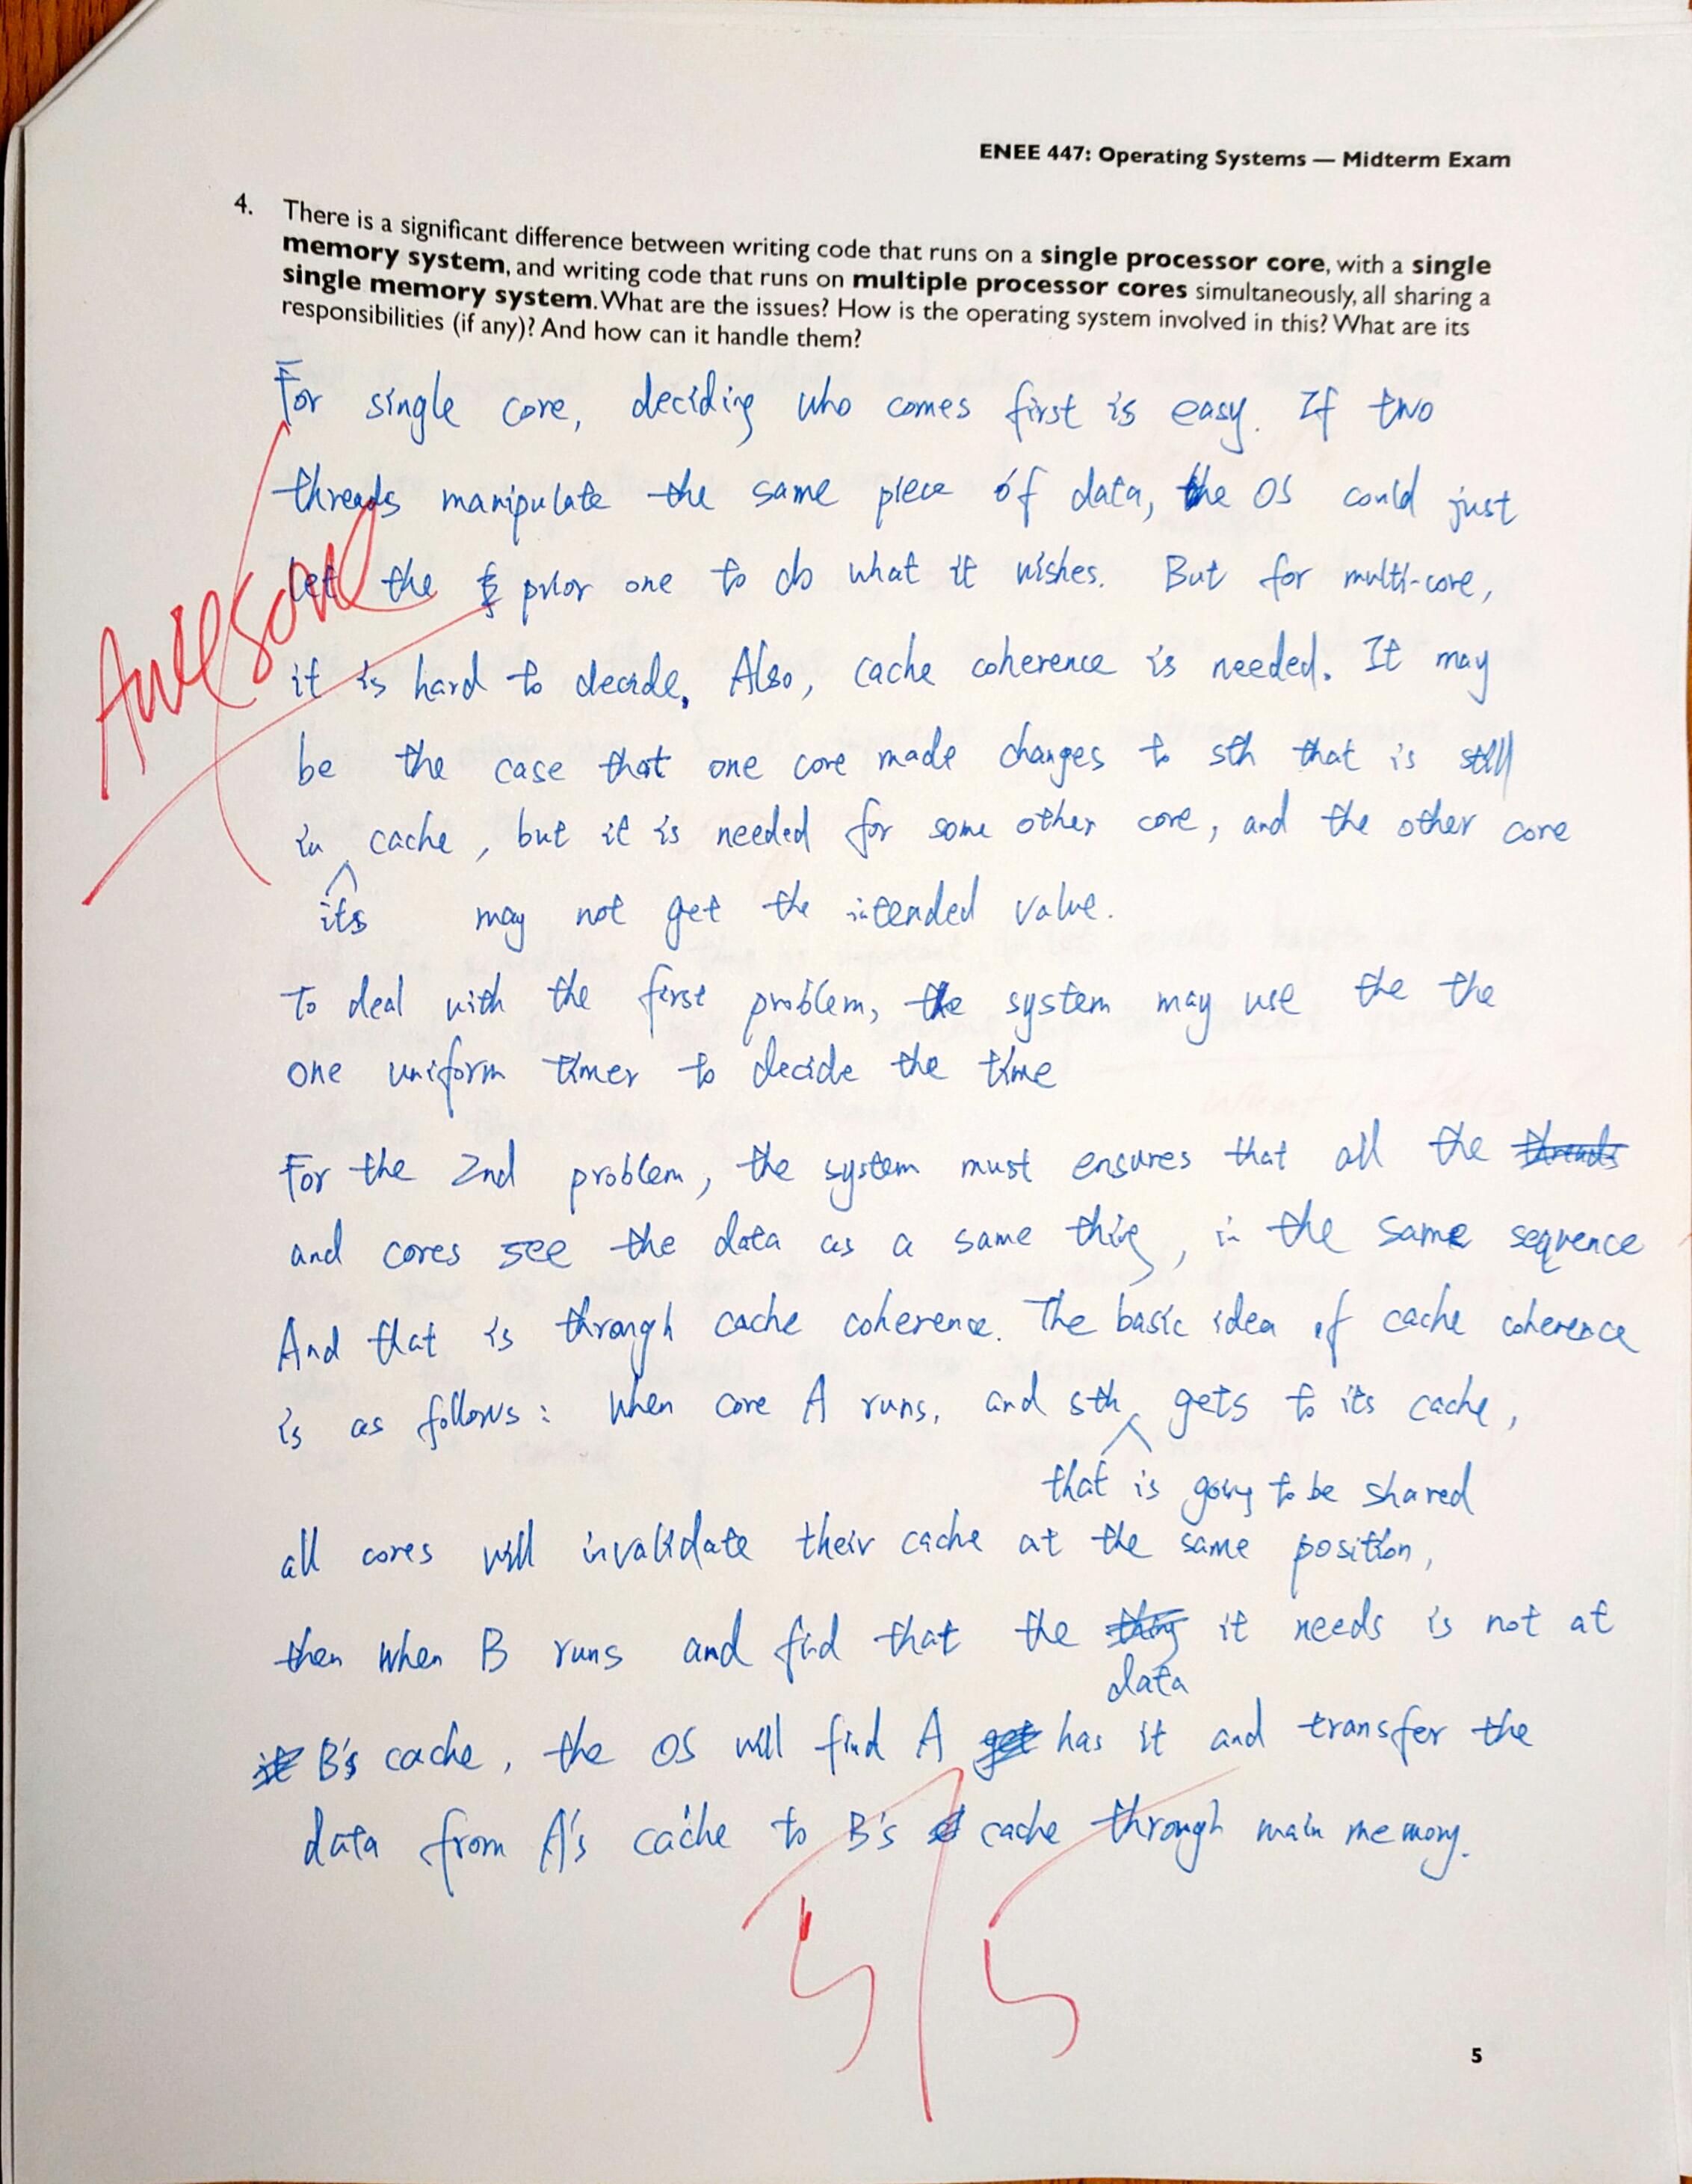 ENEE 447: Operating Systems — Midterm Exam
4. There is a significant difference between writing code that runs on a single processor core, with a single
memory system, and writing code that runs on multiple processor cores simultaneously, all sharing a
single memory system. What are the issues? How is the operating system involved in this? What are its
responsibilities (if any)? And how can it handle them?
For single core, deciding who comes first is easy. If two
threads manipulate the same piece of data, the OS could just
let the prior one to do what it wishes. But for multi-core,
Awesome
it is hard to decide. Also, cache coherence is needed. It may
be the case that one core made changes to sth that is still
in cache, but it is needed for some other core, and the other core
its may not get the intended value.
To deal with the first problem, the system may use the the
one uniform timer to decide the time
For the 2nd problem, the system must ensures that all the threads
and cores see the data as a same thing, in the same sequence
And that is through cache coherence. The basic idea of cache coherence
is as follows: When core A runs, and sth gets to its cache,
that is going to be shared
all cores will invalidate their cache at the same position,
then when B runs and find that the thing it needs is not at
data
it B's cache, the OS will find A get has it and transfer the
data from A's cache to B's cache through main memory.
5/5
5